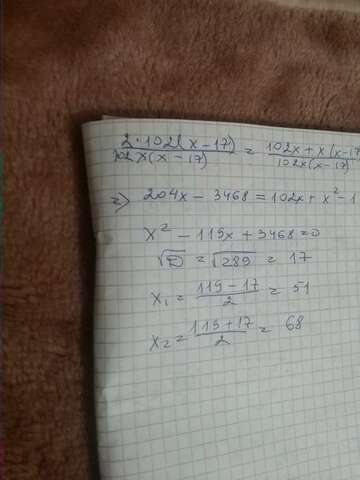 2·102(x-17) / 102x(x-17) = 102x+x(x-17 / 102x(x-17)
=> 204x - 3468 = 102x + x² - 1
x² - 119x + 3468 = 0
√D = √289 = 17
x₁ = 119-17 / 2 = 51
x₂ = 119+17 / 2 = 68